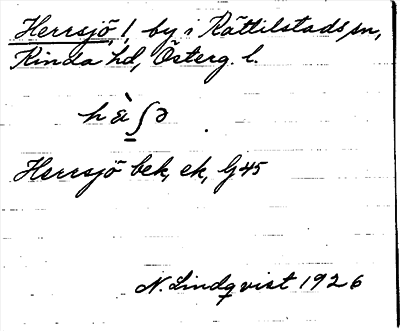 Herrsjö, 1, by i Rättilstads sn,
Kinda hd, Österg. l.
hæ̀ʃə
Herrsjö bek, ek, G45
N. Lindqvist 1926